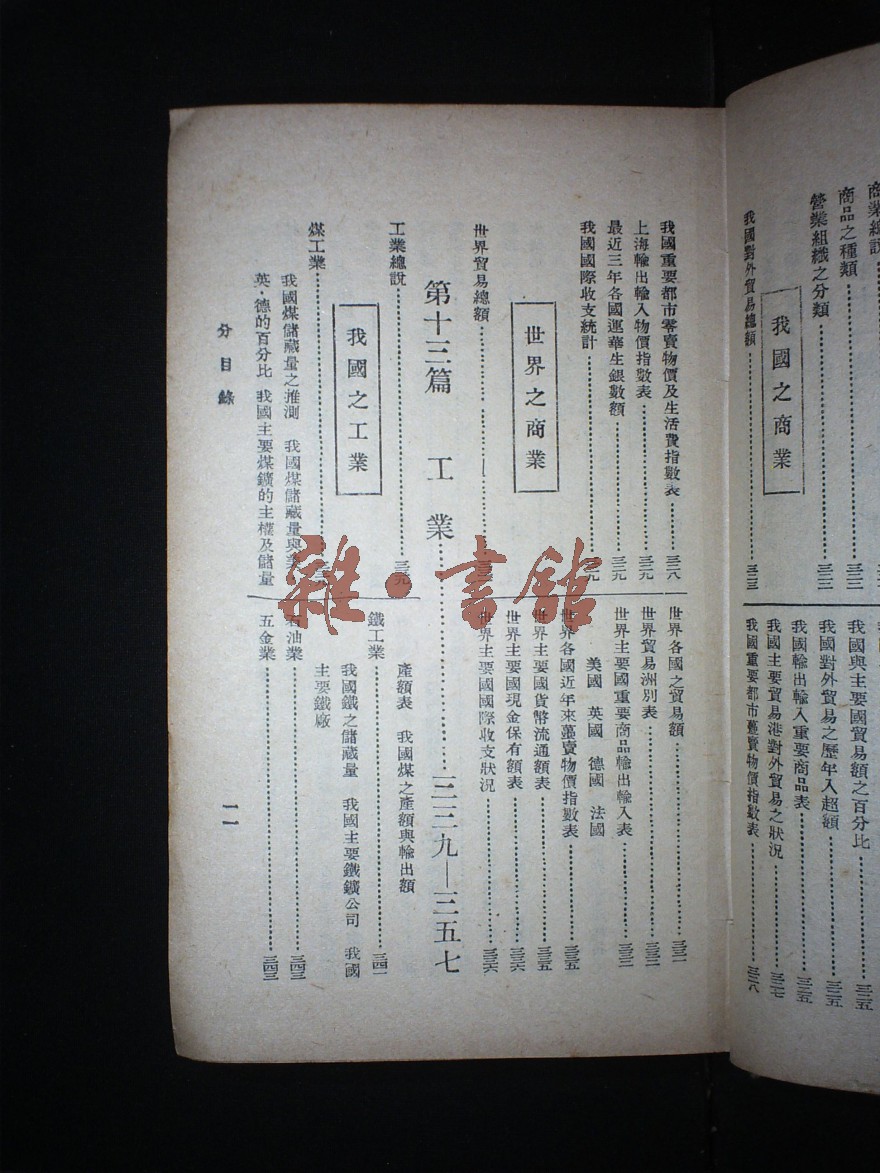 商業總說
商品之種類……三二二
營業組織之分類……三二二
我國之商業
我國對外貿易總額……三二三
我國與主要國貿易額之百分比……三二五
我國對外貿易之歷年入超額……三二五
我國輸出輸入重要商品表……三二五
我國主要貿易港對外貿易之狀況……三二七
我國重要都市躉賣物價指數表……三二八
我國重要都市零賣物價及生活費指數表……三二八
上海輸出輸入物價指數表……三二九
最近三年各國運華生銀數額……三二九
我國國際收支統計……三二九
世界之商業
世界貿易總額……
世界各國之貿易額……三三一
世界貿易洲別表……三三二
世界主要國重要商品輸出輸入表……三三二
美國 英國 德國 法國
世界各國近年來躉賣物價指數表……三三五
世界主要國貨幣流通額表……三三五
世界主要國現金保有額表……三三六
世界主要國國際收支狀況……三三六
第十三篇 工業……三三九—三五七
工業總說……三三九
我國之工業
煤工業……
我國煤儲藏量之推測 我國煤儲藏量與美
英·德的百分比 我國主要煤鑛的主權及儲量
產額表 我國煤之產額與輸出額
鐵工業……三四一
我國鐵之儲藏量 我國主要鐵鑛公司 我國
主要鐵廠
石油業……三四三
五金業……三四三
分目錄
一一
雜·書館